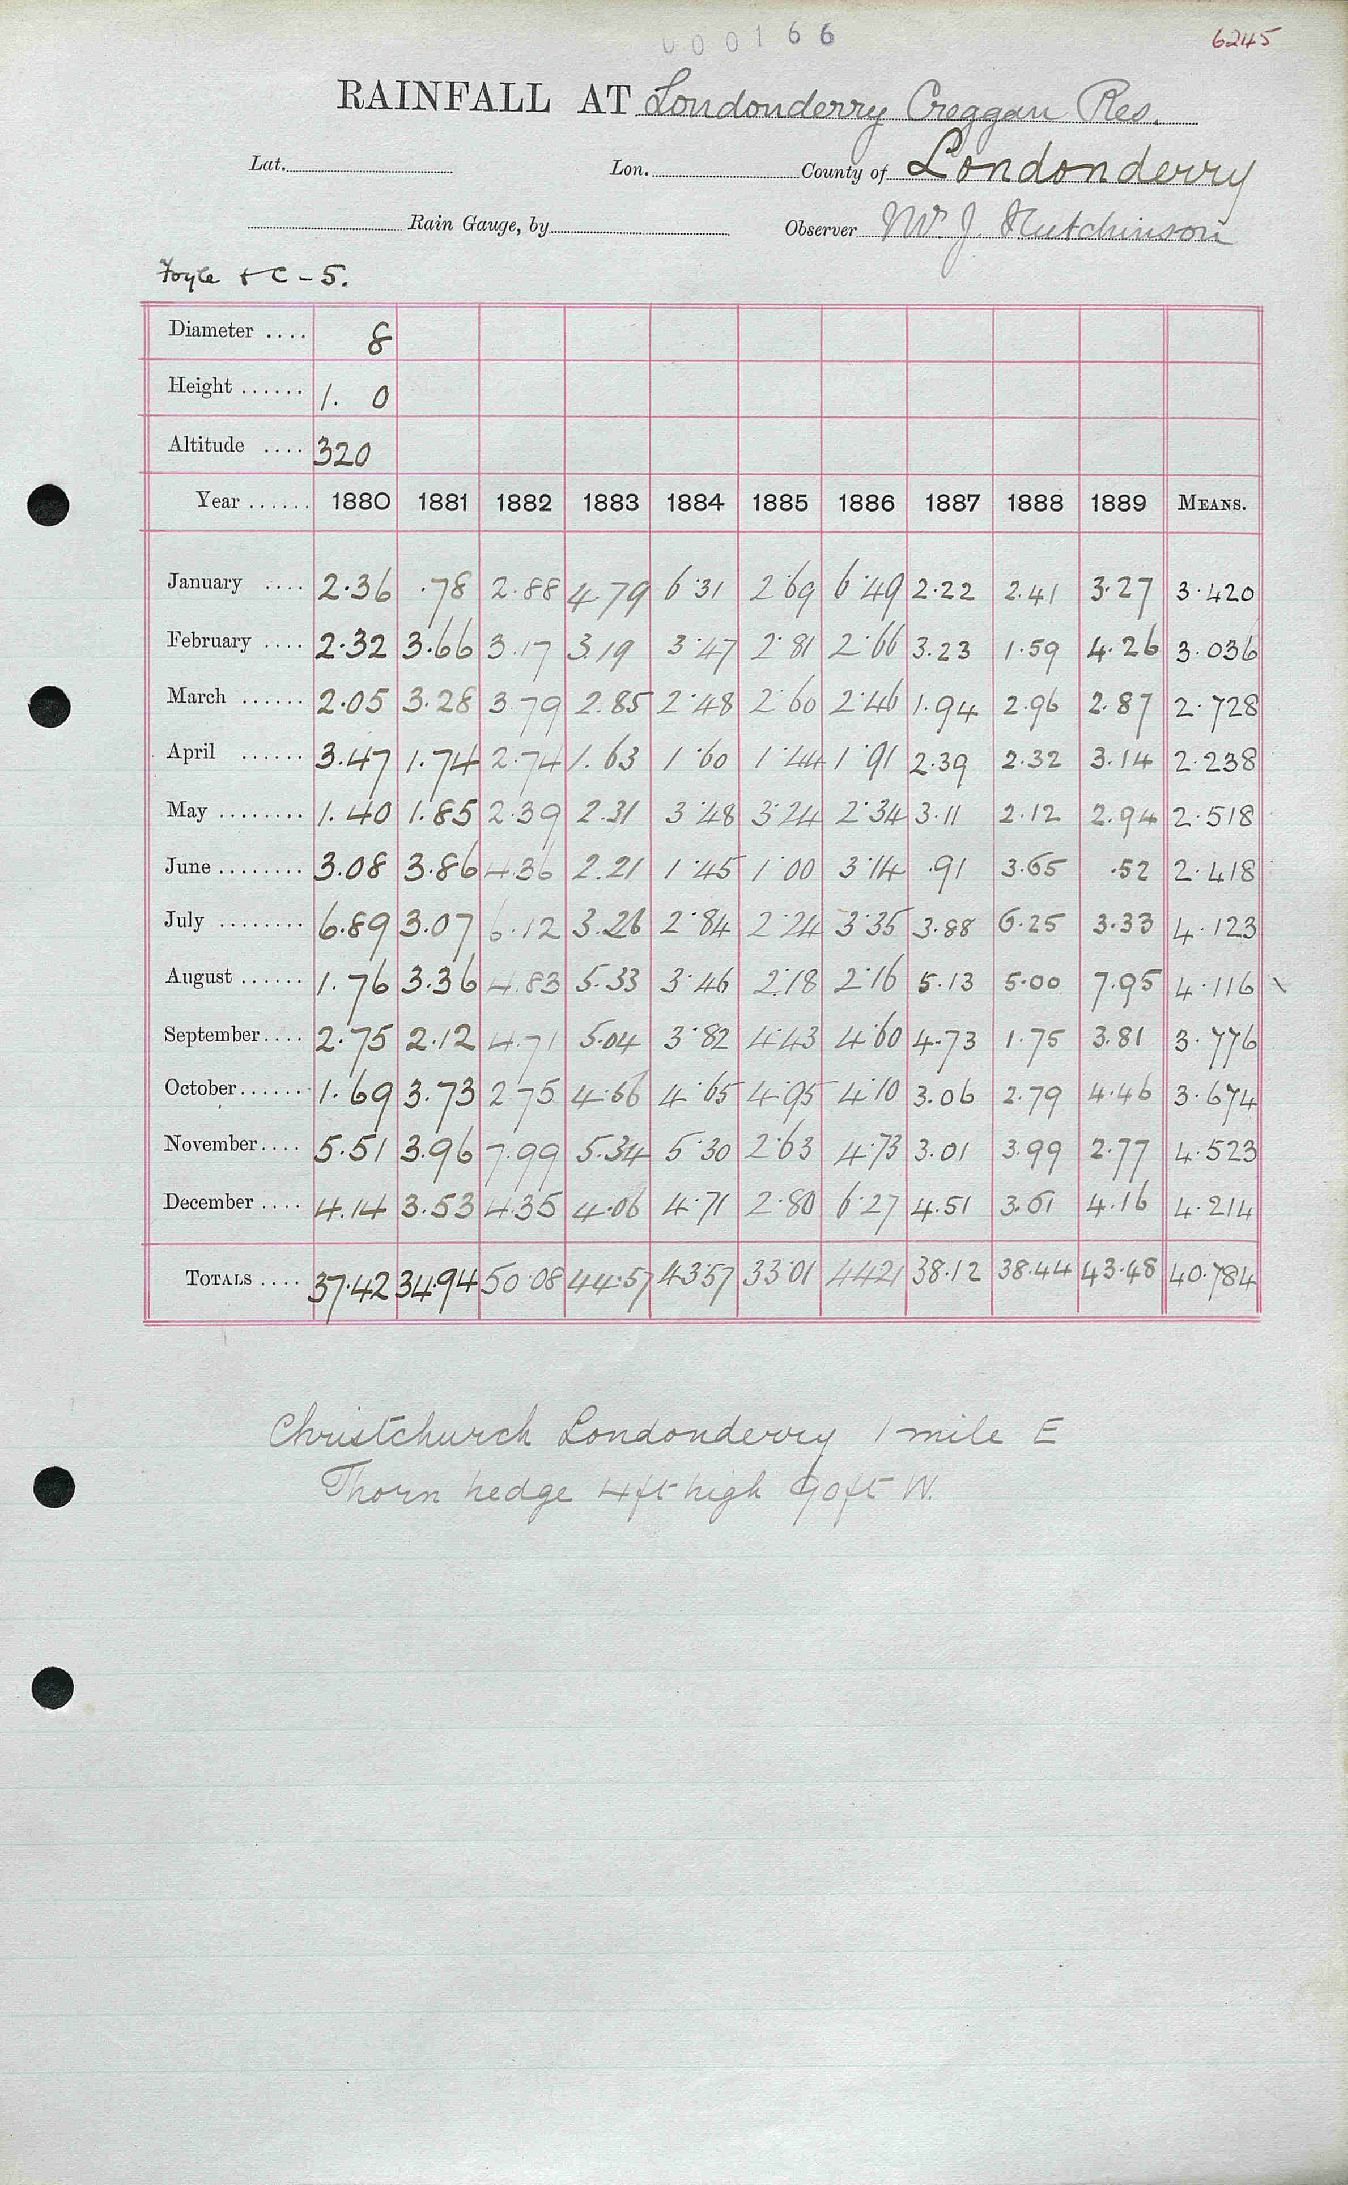 000166
6245
RAINFALL AT Londonderry Creggan Res.
Lat. Lon. County of Londonderry
Rain Gauge, by Observer Mr. J Hutchinson
Foyle & C - 5.
Diameter .... 8
Height ...... 1. 0
Altitude .... 320
Year ...... 1880 1881 1882 1883 1884 1885 1886 1887 1888 1889 MEANS.
January .... 2.36 .78 2.88 4.79 6.31 2.69 6.49 2.22 2.41 3.27 3.420
February .... 2.32 3.66 3.17 3.19 3.47 2.81 2.66 3.23 1.59 4.26 3.036
March ...... 2.05 3.28 3.79 2.85 2.48 2.60 2.46 1.94 2.96 2.87 2.728
April ...... 3.47 1.74 2.74 1.63 1.60 1.44 1.91 2.39 2.32 3.14 2.238
May ........ 1.40 1.85 2.39 2.31 3.48 3.24 2.34 3.11 2.12 2.94 2.518
June ........ 3.08 3.86 4.36 2.21 1.45 1.00 3.14 .91 3.65 .52 2.418
July ........ 6.89 3.07 6.12 3.26 2.84 2.24 3.35 3.88 6.25 3.33 4.123
August ...... 1.76 3.36 4.83 5.33 3.46 2.18 2.16 5.13 5.00 7.95 4.116
September .... 2.75 2.12 4.71 5.04 3.82 4.43 4.60 4.73 1.75 3.81 3.776
October ...... 1.69 3.73 2.75 4.56 4.65 4.95 4.10 3.06 2.79 4.46 3.674
November .... 5.51 3.96 7.99 5.34 5.30 2.63 4.73 3.01 3.99 2.77 4.523
December .... 4.14 3.53 4.35 4.06 4.71 2.80 6.27 4.51 3.61 4.16 4.214
TOTALS .... 37.42 34.94 50.08 44.57 43.57 33.01 44.21 38.12 38.44 43.48 40.784
Christchurch Londonderry 1 mile E
Thorn hedge 4ft high 90ft W.